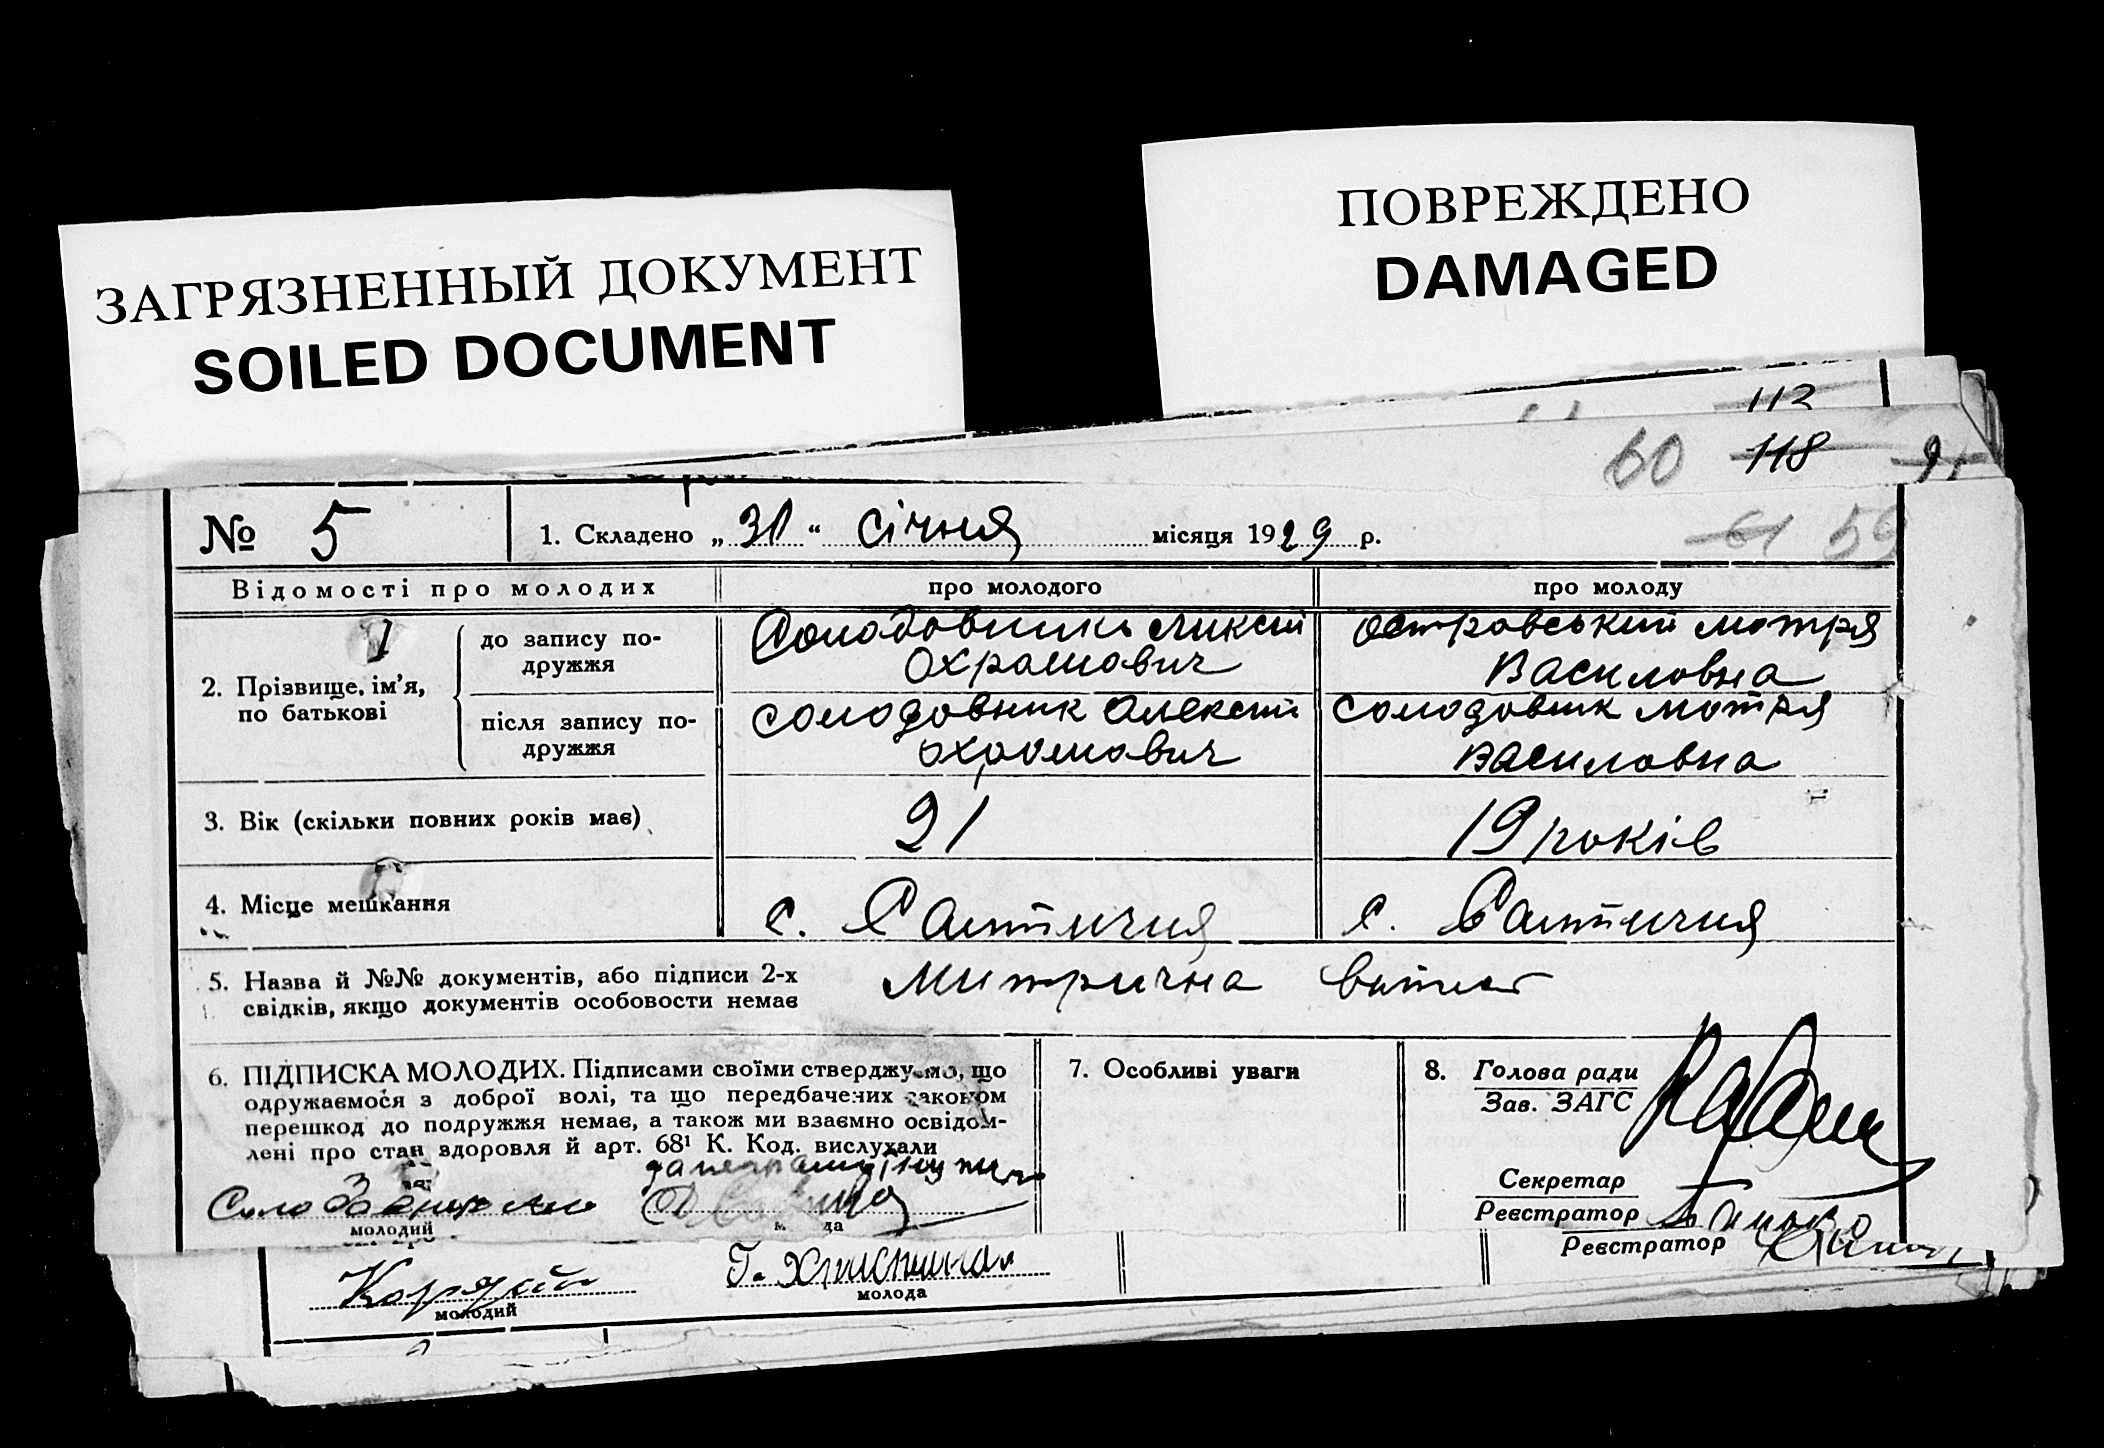 ЗАГРЯЗНЕННЫЙ ДОКУМЕНТ
SOILED DOCUMENT
ПОВРЕЖДЕНО
DAMAGED
113
60 118
№ 5 1. Складено „31“ січня місяця 1929 р. 61 59
Відомості про молодих про молодого про молоду
2. Прізвище, ім’я, по батькові
до запису подружжя
Охрамович
Островський Мотря
Василовна
після запису подружжя
Солодовник Олексій
Охромович
Солодовник Мотря
Василовна
3. Вік (скільки повних років має) 21 19 років
4. Місце мешкання с. с.
5. Назва й №№ документів, або підписи 2-х
свідків, якщо документів особовости немає
Митрична
6. ПІДПИСКА МОЛОДИХ. Підписами своїми стверджуємо, що
одружаємося з доброї волі, та що передбачених законом
перешкод до подружжя немає, а також ми взаємно освідом-
лені про стан здоровля й арт. 68¹ К. Код. вислухали
молодий
7. Особливі уваги
8. Голова ради
Зав. ЗАГС
Секретар
Реєстратор
Реєстратор
молодий
молода